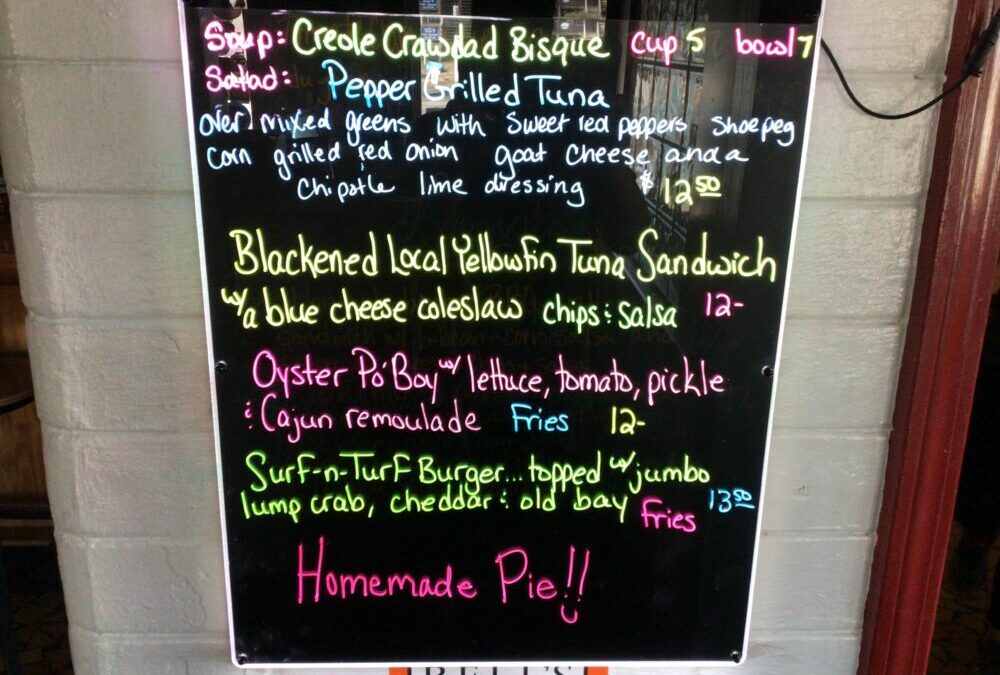 Soup: Creole Crawdad Bisque cup 5 bowl 7
Salad: Pepper Grilled Tuna
over mixed greens with sweet red peppers shoepeg
corn grilled red onion goat cheese and a
chipotle lime dressing $12.50
Blackened Local Yellowfin Tuna Sandwich
w/ a blue cheese coleslaw chips & salsa 12-
Oyster Po'Boy w/ lettuce, tomato, pickle
& Cajun remoulade Fries 12-
Surf-n-Turf Burger... topped w/ jumbo
lump crab, cheddar & old bay Fries 13.50
Homemade Pie!!
BELL'S